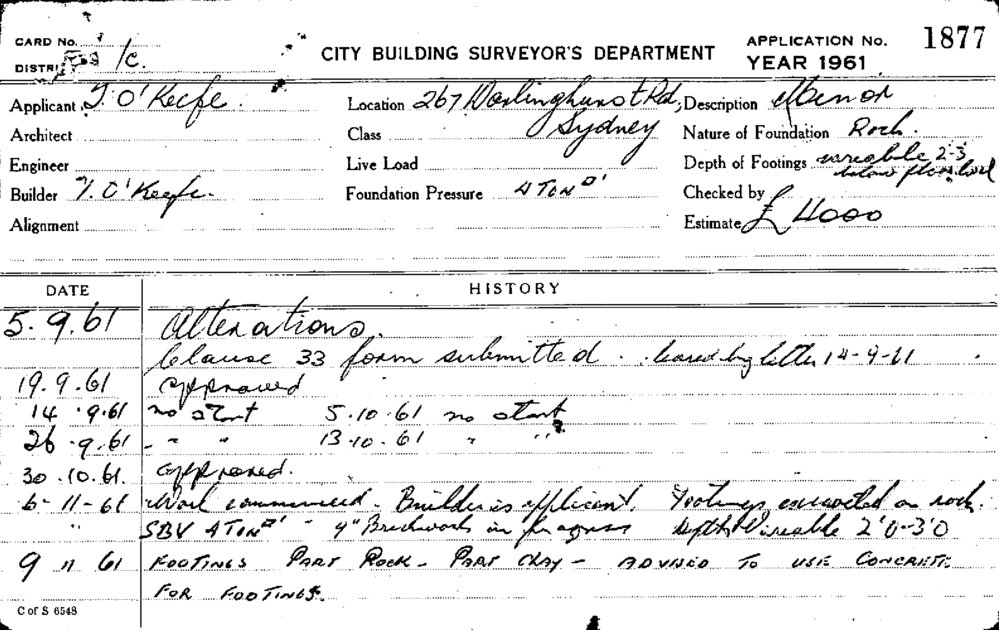 CARD No.
DISTRI /c.
CITY BUILDING SURVEYOR'S DEPARTMENT
APPLICATION No. 1877
YEAR 1961
Applicant T. O'Keefe. Location 267 Darlinghurst Rd, Sydney Description Minor
Architect Class Nature of Foundation Rock.
Engineer Live Load Depth of Footings variable 2-3 below floor level
Builder T. O'Keefe. Foundation Pressure 4 TON □'
Checked by
Alignment Estimate £ 4000
DATE HISTORY
5.9.61 Alterations.
Clause 33 form submitted. by letter 14-9-61
19.9.61 approved
14.9.61 no start 5.10.61 no start
26.9.61 - " " 13.10.61 " "
30.10.61. approved.
6-11-61 Work commenced. Builder is applicant. Footings excavated on rock.
" SBV 4 TON □' - 9" Brickwork in progress depths Variable 2'0-3'0
9 11 61 FOOTINGS PART ROCK - PART CLAY - ADVISED TO USE CONCRETE
FOR FOOTINGS.
C of S 6548